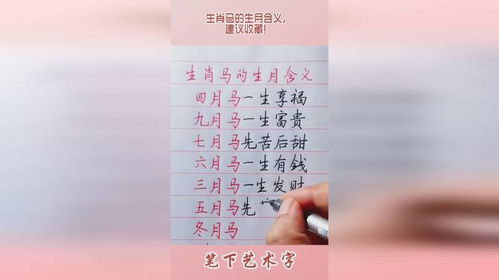 生肖马的生月含义,
建议收藏!
生肖马的生月含义
四月马一生享福
九月马一生富貴
七月马先苦后甜
六月马一生有钱
三月马一生发财
五月马先
冬月马
笔下艺术字